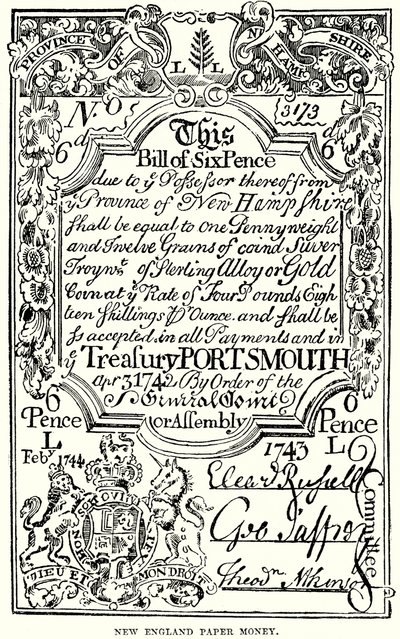 PROVINCE OF NEW HAMP SHIRE
L L
No 3173
6d 6d
This
Bill of Six Pence
due to ye Possessor thereof from
ye Province of New Hampshire
shall be equal to one Pennyweight
and Twelve Grains of coind Silver
Troy wt. of Sterling Alloy or Gold
Coin at ye Rate of Four Pounds Eigh
teen Shillings Pr Ounce. and shall be
so accepted. in all Payments and in
ye Treasury PORTSMOUTH
Apr 3 1742 By Order of the
General Court
or Assembly
6 Pence 6 Pence
L L
Feby 1744 1743
HONI SOIT QUI MAL Y PENSE
DIEU ET MON DROIT
Eleaz Russell
Geo Jaffrey
Theodn. Atkinson
Committee
NEW ENGLAND PAPER MONEY.